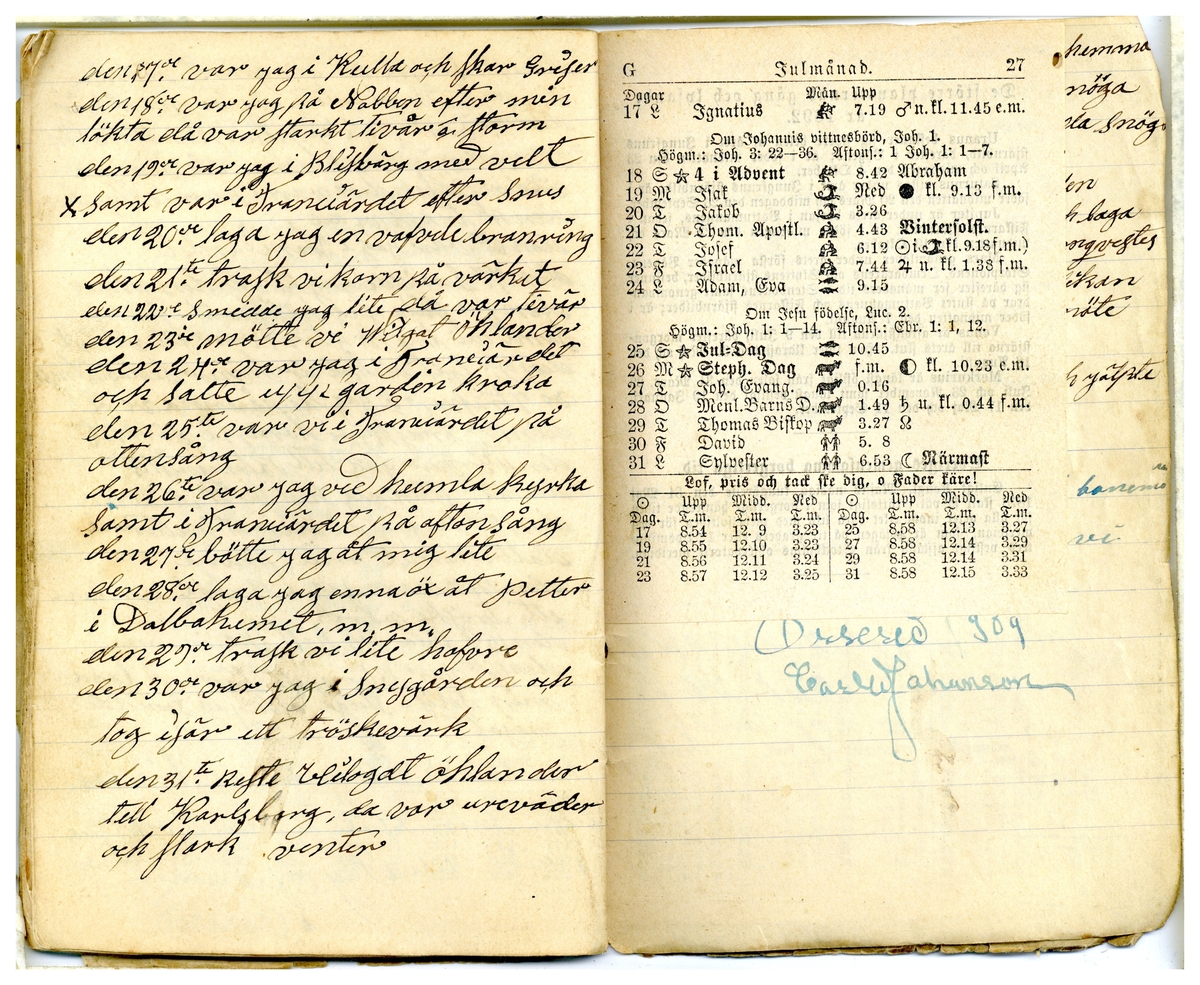 den 17de var jag i Kulla och skar Griser
den 18de var jag på Nabben efter min
lökta då var starkt livär o. storm
den 19de var jag i Blisbärg med velt
x samt var i Franciärdet efter Snus
den 20de laga jag en vafvde branring
den 21te trask vi korn på värket
den 22de Smedde jag lite då var livär
den 23de mötte vi Öhlander
den 24de var jag i Franciärdet
och satte upp gardin kroka
den 25te var vi i Franciärdet på
ottensång
den 26te var jag ved humla kyrka
samt i Franciärdet på aftonsång
den 27de bötte jag åt mig lite
den 28de laga jag enna öx åt Petter
i Dalbahemet, m, m,
den 29de trask vi lite hafvre
den 30de var jag i Snejgården och
tog isär ett tröskevärk
den 31te reste Öhlander
till Karlsberg, da var ureväder
och stark venter
G Julmånad. 27
Dagar Mån. Upp
17 L Ignatius 7.19 ♂ n. kl. 11.45 e.m.
Om Johannis vittnesbörd, Joh. 1.
Högm.: Joh. 3: 22—36. Aftons.: 1 Joh. 1: 1—7.
18 S ☆ 4 i Advent 8.42 Abraham
19 M Isak Ned ● kl. 9.13 f.m.
20 T Jakob 3.26
21 O Thom. Apostl. 4.43 Vintersolst.
22 T Josef 6.12 ⊙ i ♑ kl. 9.18 f.m.)
23 F Israel 7.44 ♃ n. kl. 1.38 f.m.
24 L Adam, Eva 9.15
Om Jesu födelse, Luc. 2.
Högm.: Joh. 1: 1—14. Aftons.: Ebr. 1: 1, 12.
25 S ☆ Jul-Dag 10.45
26 M ☆ Steph. Dag f.m. ◐ kl. 10.23 e.m.
27 T Joh. Evang. 0.16
28 O Menl. Barns D. 1.49 ♄ u. kl. 0.44 f.m.
29 T Thomas Biskop 3.27 ☊
30 F David 5. 8
31 L Sylvester 6.53 ☾ Närmast
Lof, pris och tack ske dig, o Fader käre!
⊙ Upp Midd. Ned ⊙ Upp Midd. Ned
Dag. T.m. T.m. T.m. Dag. T.m. T.m. T.m.
17 8.54 12. 9 3.23 25 8.58 12.13 3.27
19 8.55 12.10 3.23 27 8.58 12.14 3.29
21 8.56 12.11 3.24 29 8.58 12.14 3.31
23 8.57 12.12 3.25 31 8.58 12.15 3.33
Orsered 1909
Carl Johanson
hemma
nöga
la snög
en
laga
kan
vi